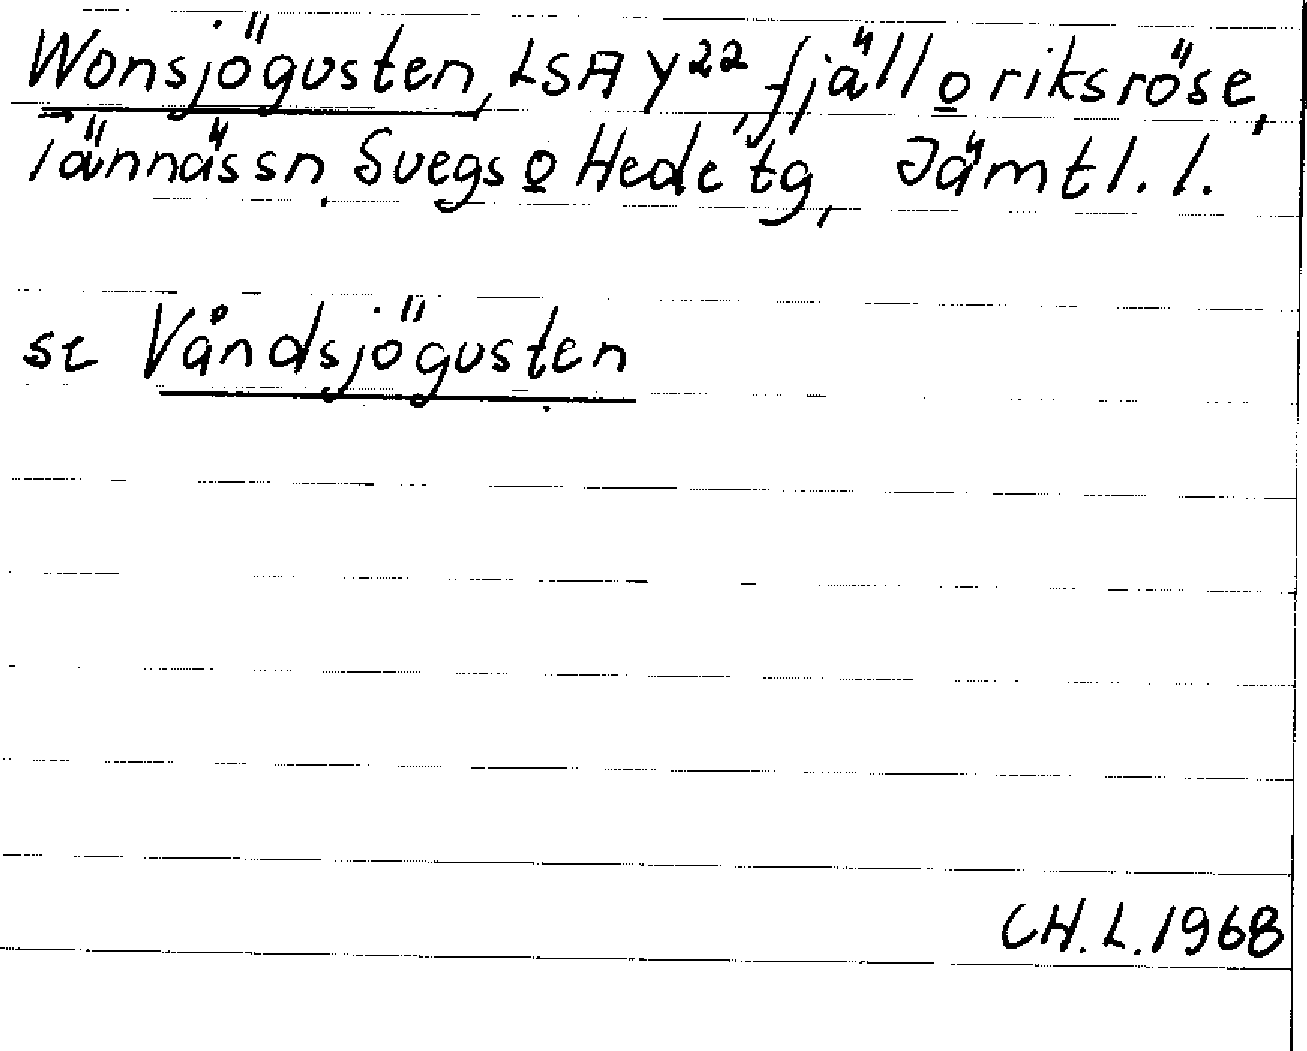 Wonsjögusten, LSA Y22, fjäll o riksröse,
Tännäs sn, Svegs o Hede tg, Jämtl. l.
se Våndsjögusten
CH. L. 1968